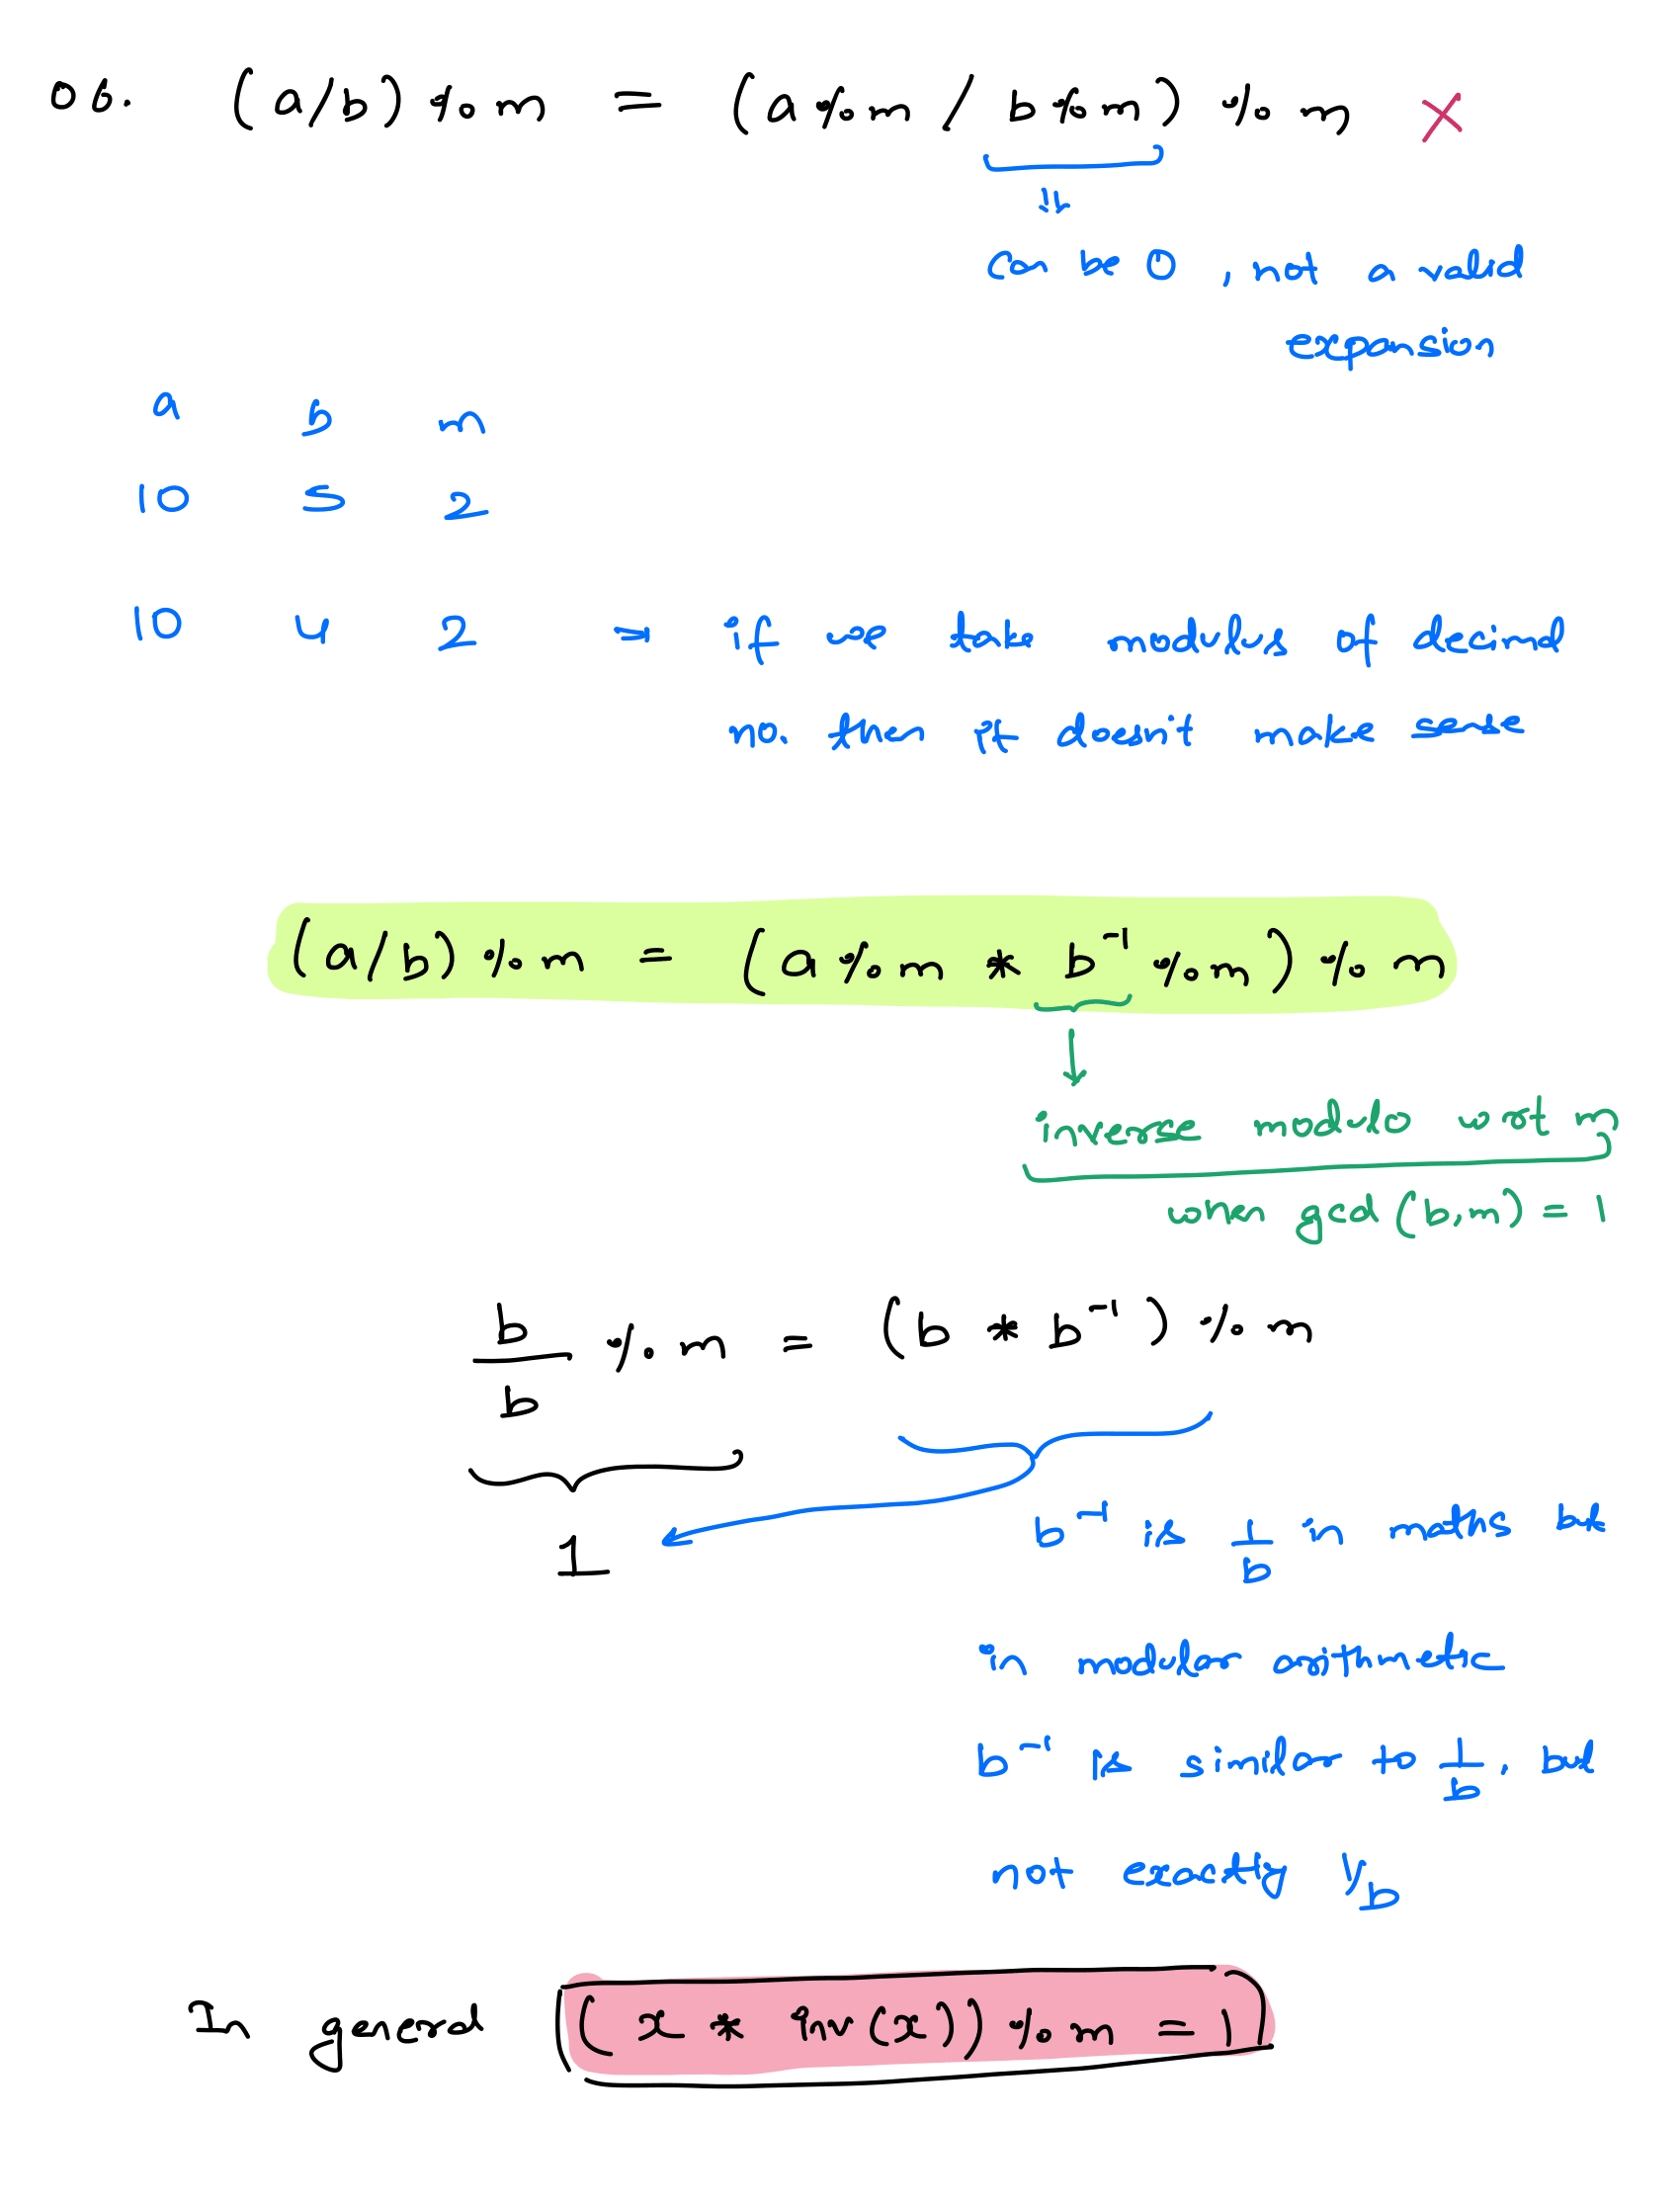 06. (a/b) % m = (a%m / b%m) % m ✗
can be 0 , not a valid
expansion
a b m
10 5 2
10 4 2 → if we take modulus of decimal
no. then it doesn't make sense
(a/b) % m = (a%m * b⁻¹%m) % m
inverse modulo wrt m
when gcd (b,m) = 1
b/b % m = (b * b⁻¹) % m
1
b⁻¹ is 1/b in maths but
in modular arithmetic
b⁻¹ is similar to 1/b, but
not exactly 1/b
In general ( x * inv(x)) % m = 1